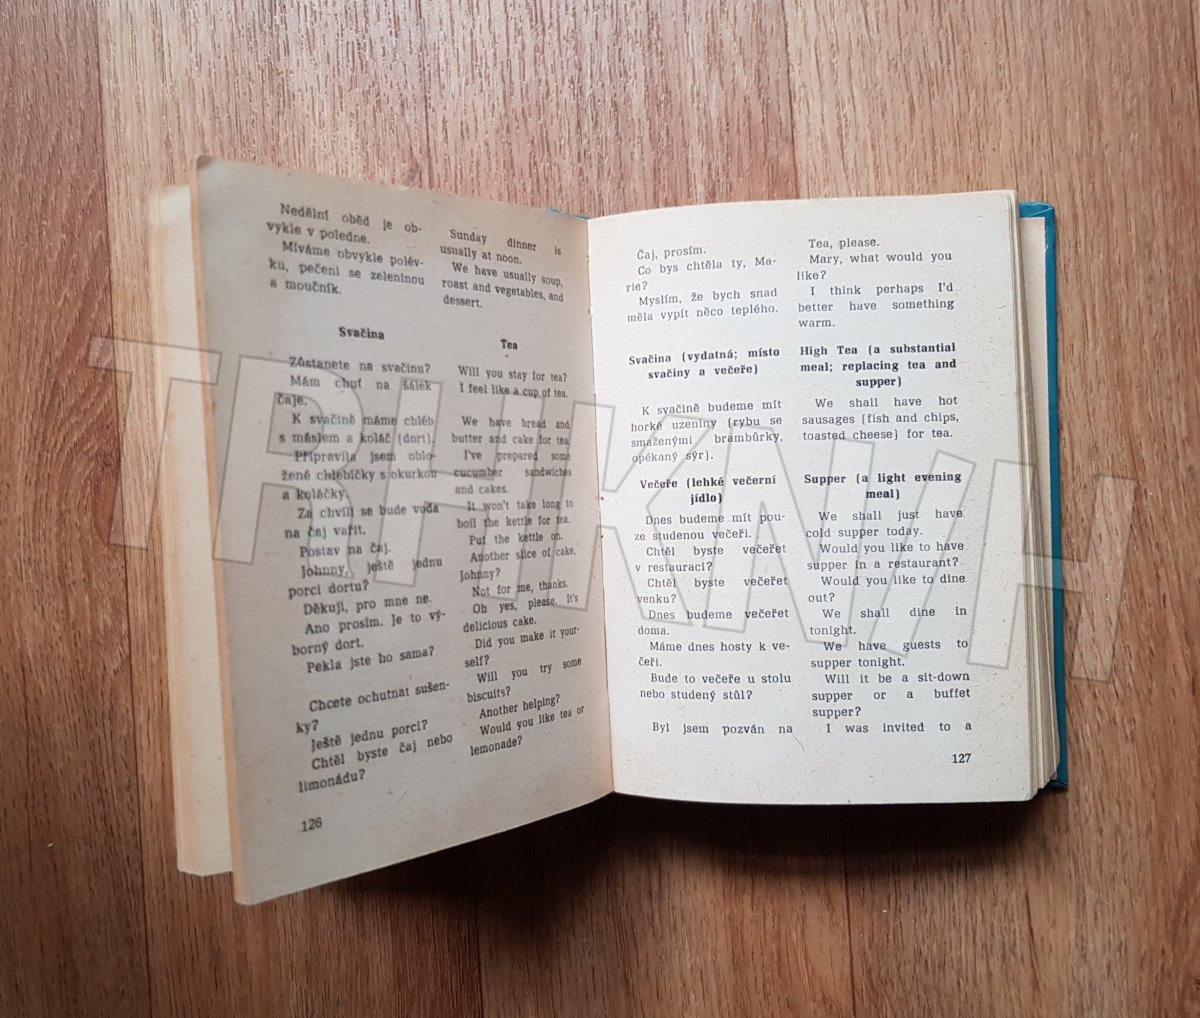 Nedělní oběd je ob-
vykle v poledne.
Míváme obvykle polév-
ku, pečení se zeleninou
a moučník.
Sunday dinner is
usually at noon.
We have usually soup,
roast and vegetables, and
dessert.
Svačina
Zůstanete na svačinu?
Mám chuť na šálek
čaje.
K svačině máme chléb
s máslem a koláč (dort).
Připravila jsem oblo-
žené chlebíčky s okurkou
a koláčky.
Za chvíli se bude voda
na čaj vařit.
Postav na čaj.
Johnny, ještě jednu
porci dortu?
Děkuji, pro mne ne.
Ano prosím. Je to vý-
borný dort.
Pekla jste ho sama?
Chcete ochutnat sušen-
ky?
Ještě jednu porci?
Chtěl byste čaj nebo
limonádu?
Tea
Will you stay for tea?
I feel like a cup of tea.
We have bread and
butter and cake for tea.
I've prepared some
cucumber sandwiches
and cakes.
It won't take long to
boil the kettle for tea.
Put the kettle on.
Another slice of cake,
Johnny?
Not for me, thanks.
Oh yes, please. It's
delicious cake.
Did you make it your-
self?
Will you try some
biscuits?
Another helping?
Would you like tea or
lemonade?
126
Čaj, prosím.
Co bys chtěla ty, Ma-
rie?
Myslím, že bych snad
měla vypít něco teplého.
Tea, please.
Mary, what would you
like?
I think perhaps I'd
better have something
warm.
Svačina (vydatná; místo
svačiny a večeře)
K svačině budeme mít
horké uzeniny (rybu se
smaženými brambůrky,
opékaný sýr).
High Tea (a substantial
meal; replacing tea and
supper)
We shall have hot
sausages (fish and chips,
toasted cheese) for tea.
Večeře (lehké večerní
jídlo)
Dnes budeme mít pou-
ze studenou večeři.
Chtěl byste večeřet
v restauraci?
Chtěl byste večeřet
venku?
Dnes budeme večeřet
doma.
Máme dnes hosty k ve-
čeři.
Bude to večeře u stolu
nebo studený stůl?
Byl jsem pozván na
Supper (a light evening
meal)
We shall just have
cold supper today.
Would you like to have
supper in a restaurant?
Would you like to dine
out?
We shall dine in
tonight.
We have guests to
supper tonight.
Will it be a sit-down
supper or a buffet
supper?
I was invited to a
127
TRHKNIH